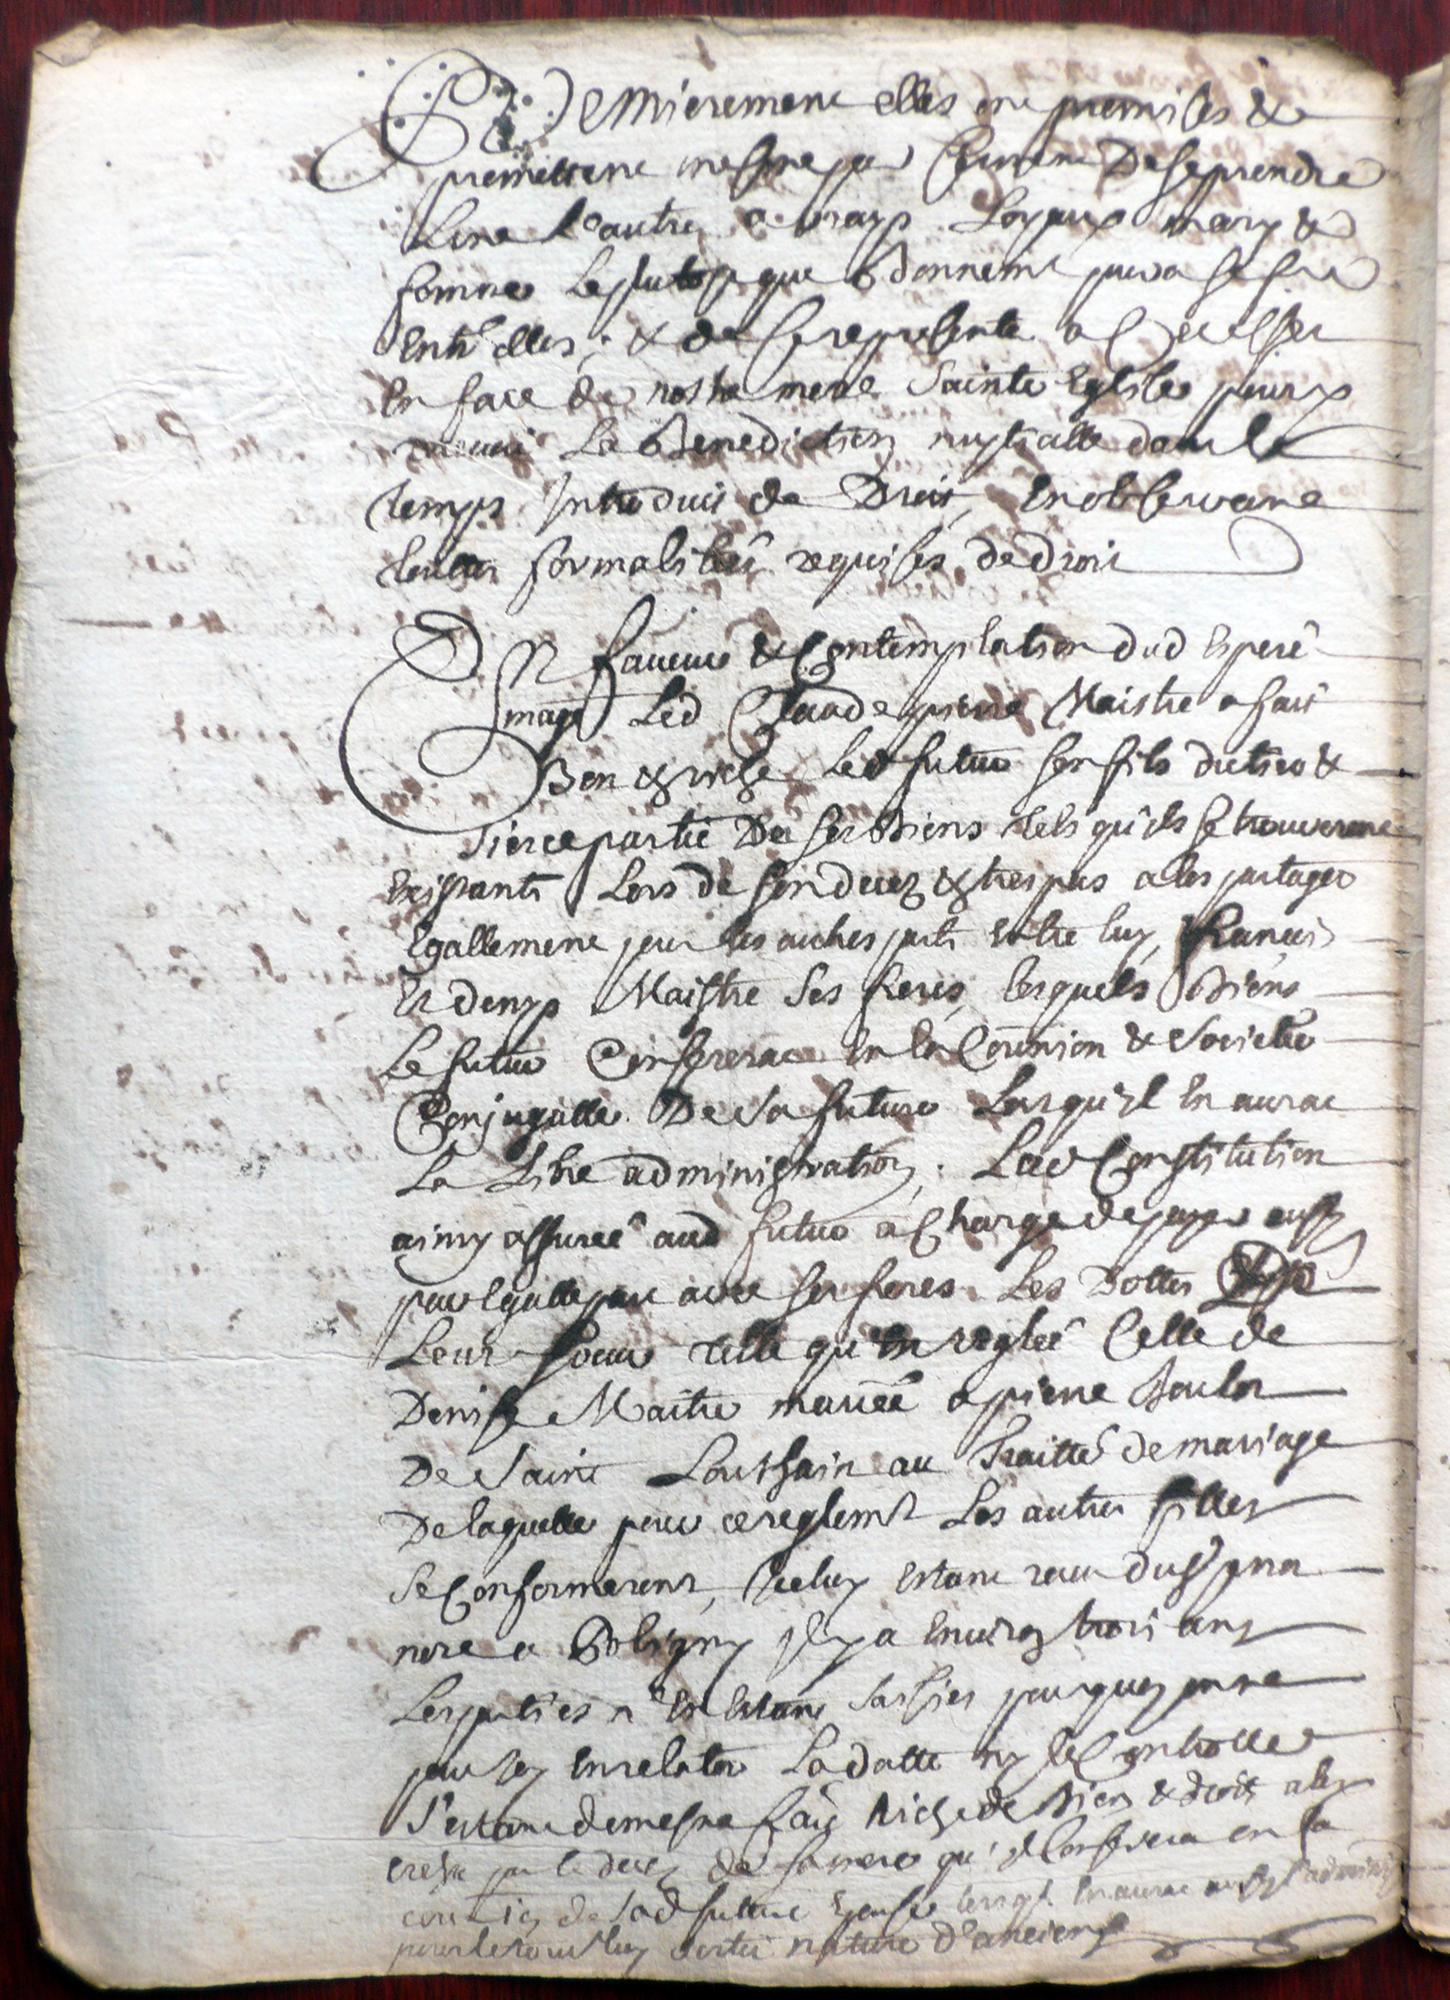 Premierement elles ont promises &
promettent mesme par serment de se prendre
l'une l'autre a vrays loyaux mary &
femme le plutost que bonnement pourra se faire
entre elles, & de se representer a cet effet
en face de nostre mere Sainte Eglise pour y
recevoir la Benediction nuptialle dans le
temps introduit de Droit, en observant
touttes formalitées requises de droit
En faveur & Contemplation dud esperé
mage led Claude pierre Maistre a fait
Bon & riche led futur son fils d'actree &
tierce partie De ses Biens tels qu'ils se trouveront
existants lors de son decez & trespas a les partager
Egallement pour les autres parts entre luy, francois
et denys Maistre ses freres, lesquels Biens
le futur Confererat en la Coṁnion & Societée
Conjugalle De sa future lorsqu'il en aurat
la libre administration, Lad Constitution
ainsy assurée aud futur a Charge de payer aussy
par egalle part avec ses freres les Dottes
Leur soeur telle qu'en reglée Celle de
Denise Maitre mariée a pierre
De Saint Lauthain au Traitté de mariage
De laquelle pour ce reglemt les autres filles
se Conformeront, iceluy estant receu du Sr
nore a Poligny il y a environ trois ans
les parties n'en estant saisies pourquoy on ne
peut icy en relater la datte ny le Controlle
s'estant de mesme fait riche de biens & droits a luy
par le decez de sa mere qu'il Conferera en la
de sad future Epouse lorsql en aurat aussy l'admini
pour le tout luy sortir nature d'anciens